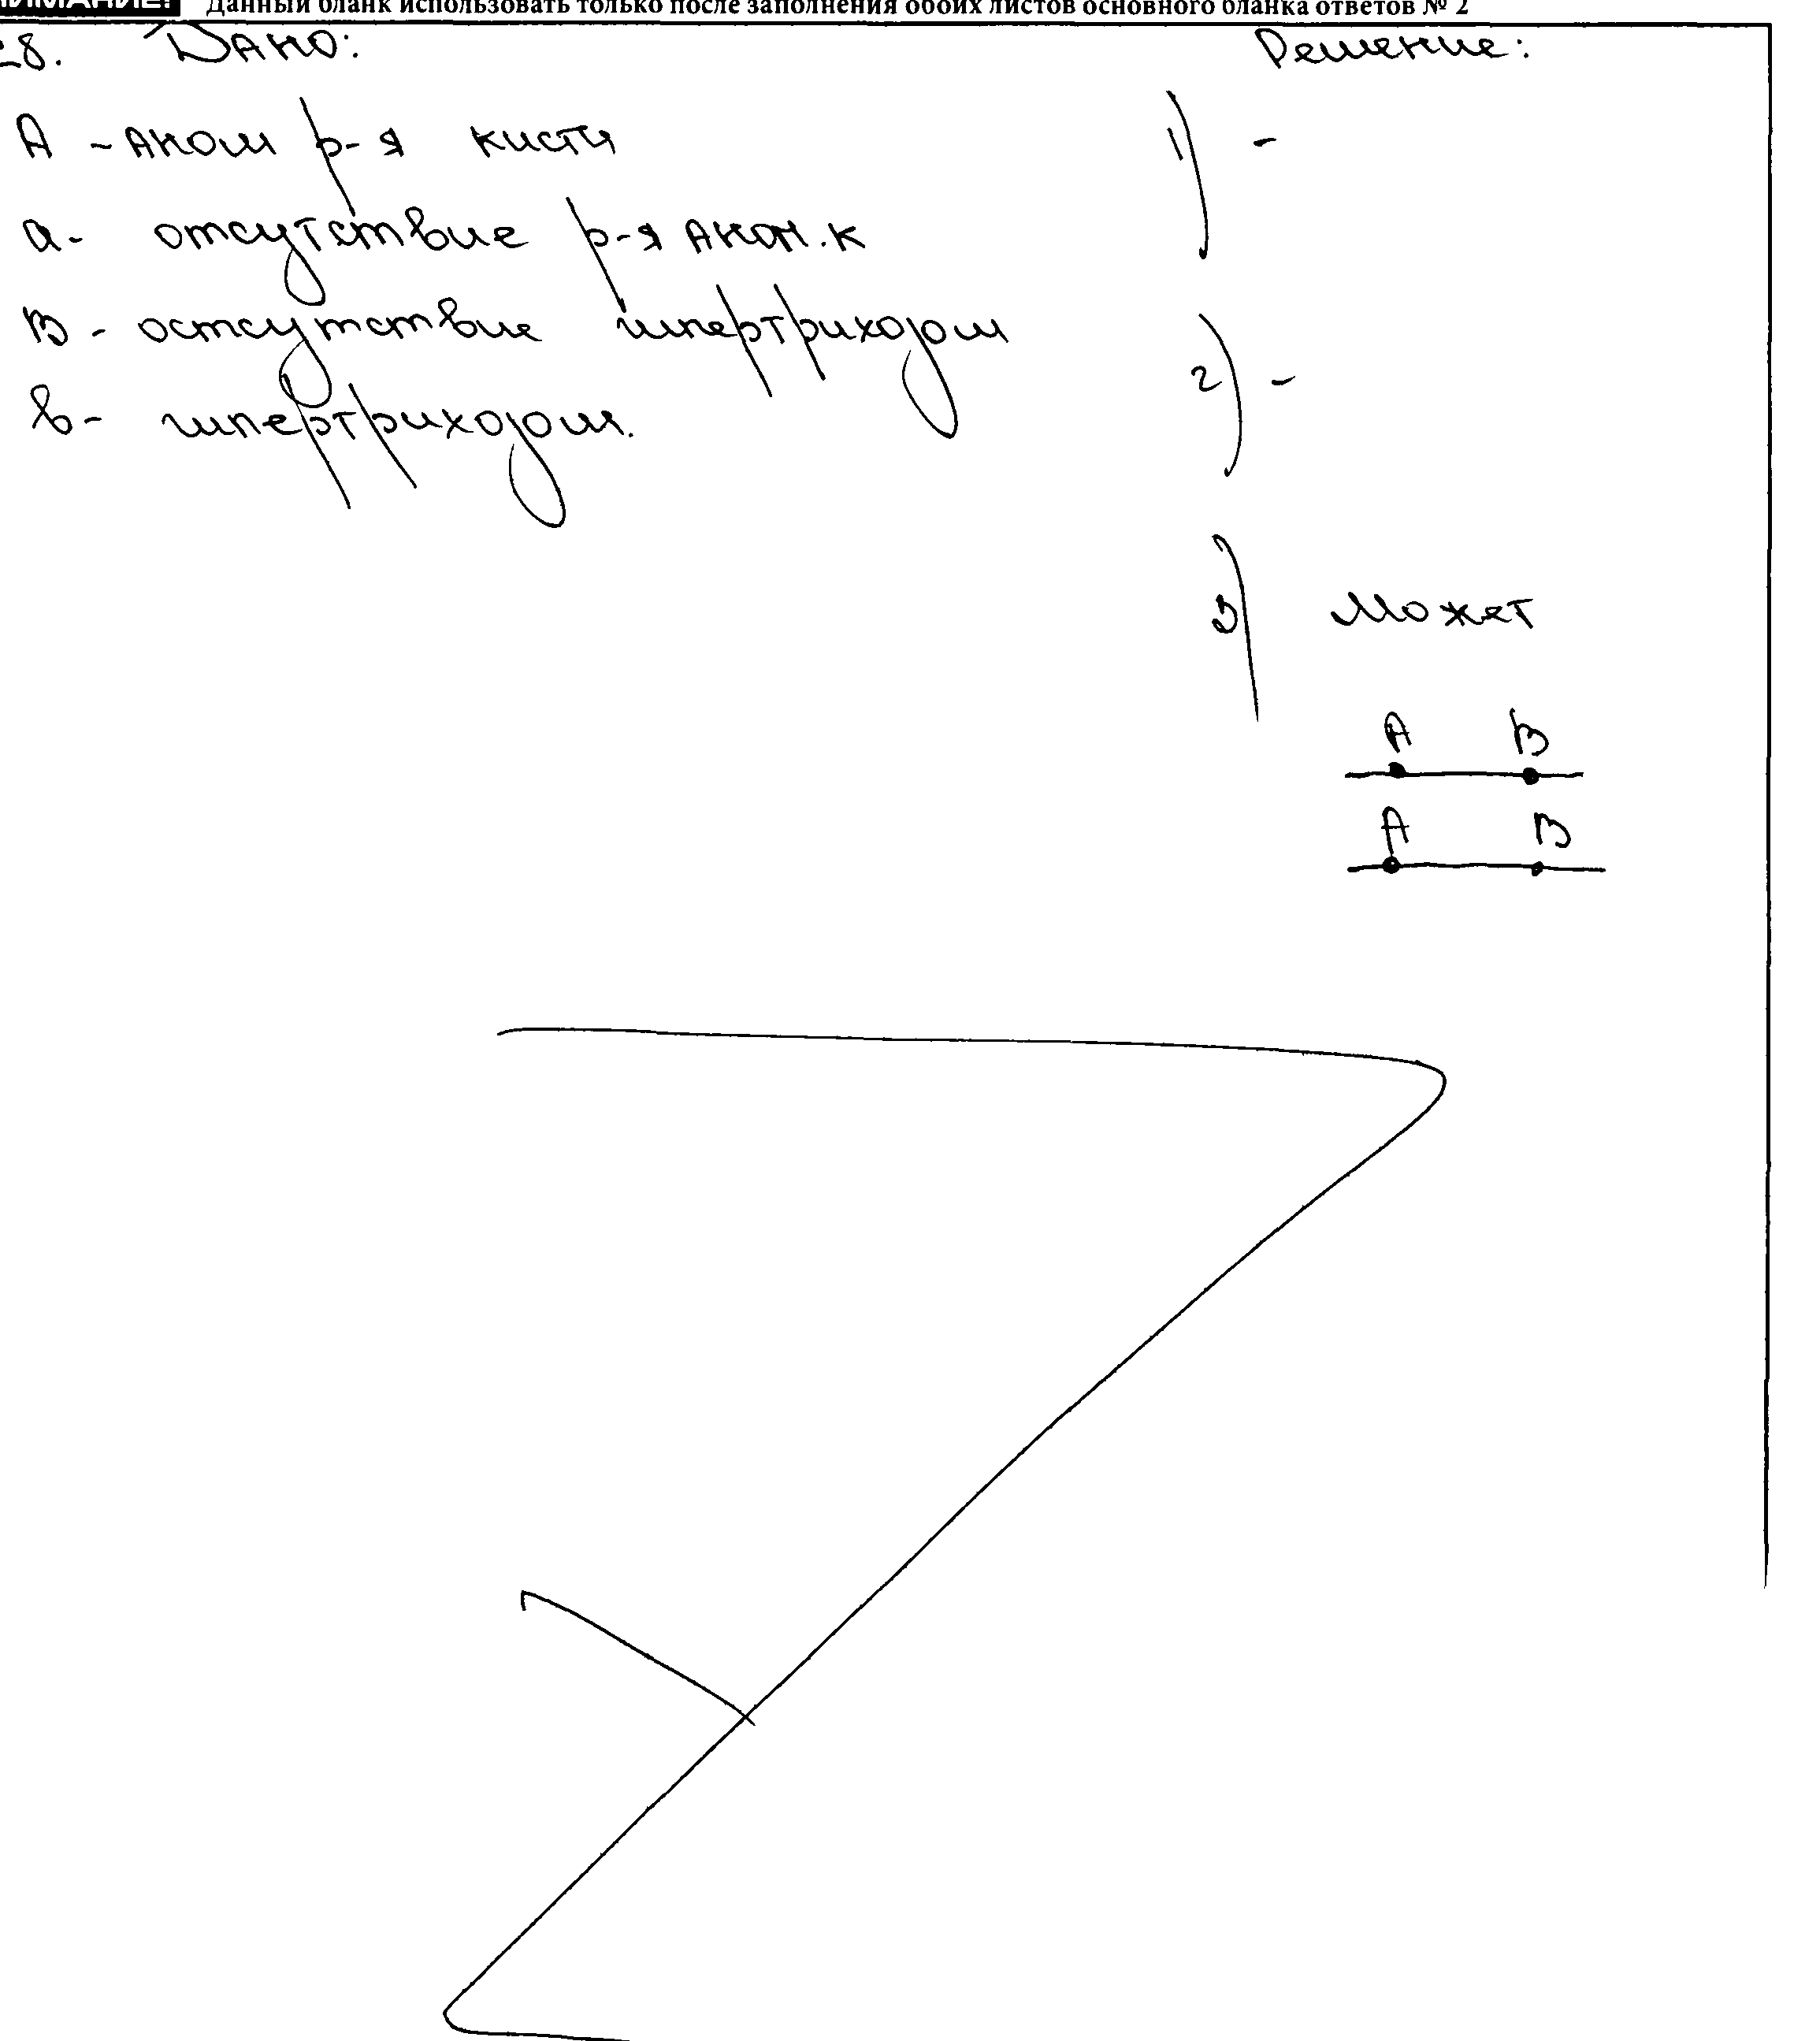 Данный бланк использовать только после заполнения обоих листов основного бланка ответов № 2
28. Дано:
А - аном р-я кисти
а - отсутствие р-я аном. к
В - остсутствие гипертрихозом
в - гипертрихозом.
Решение:
1) -
2) -
3) Может
А В
А В